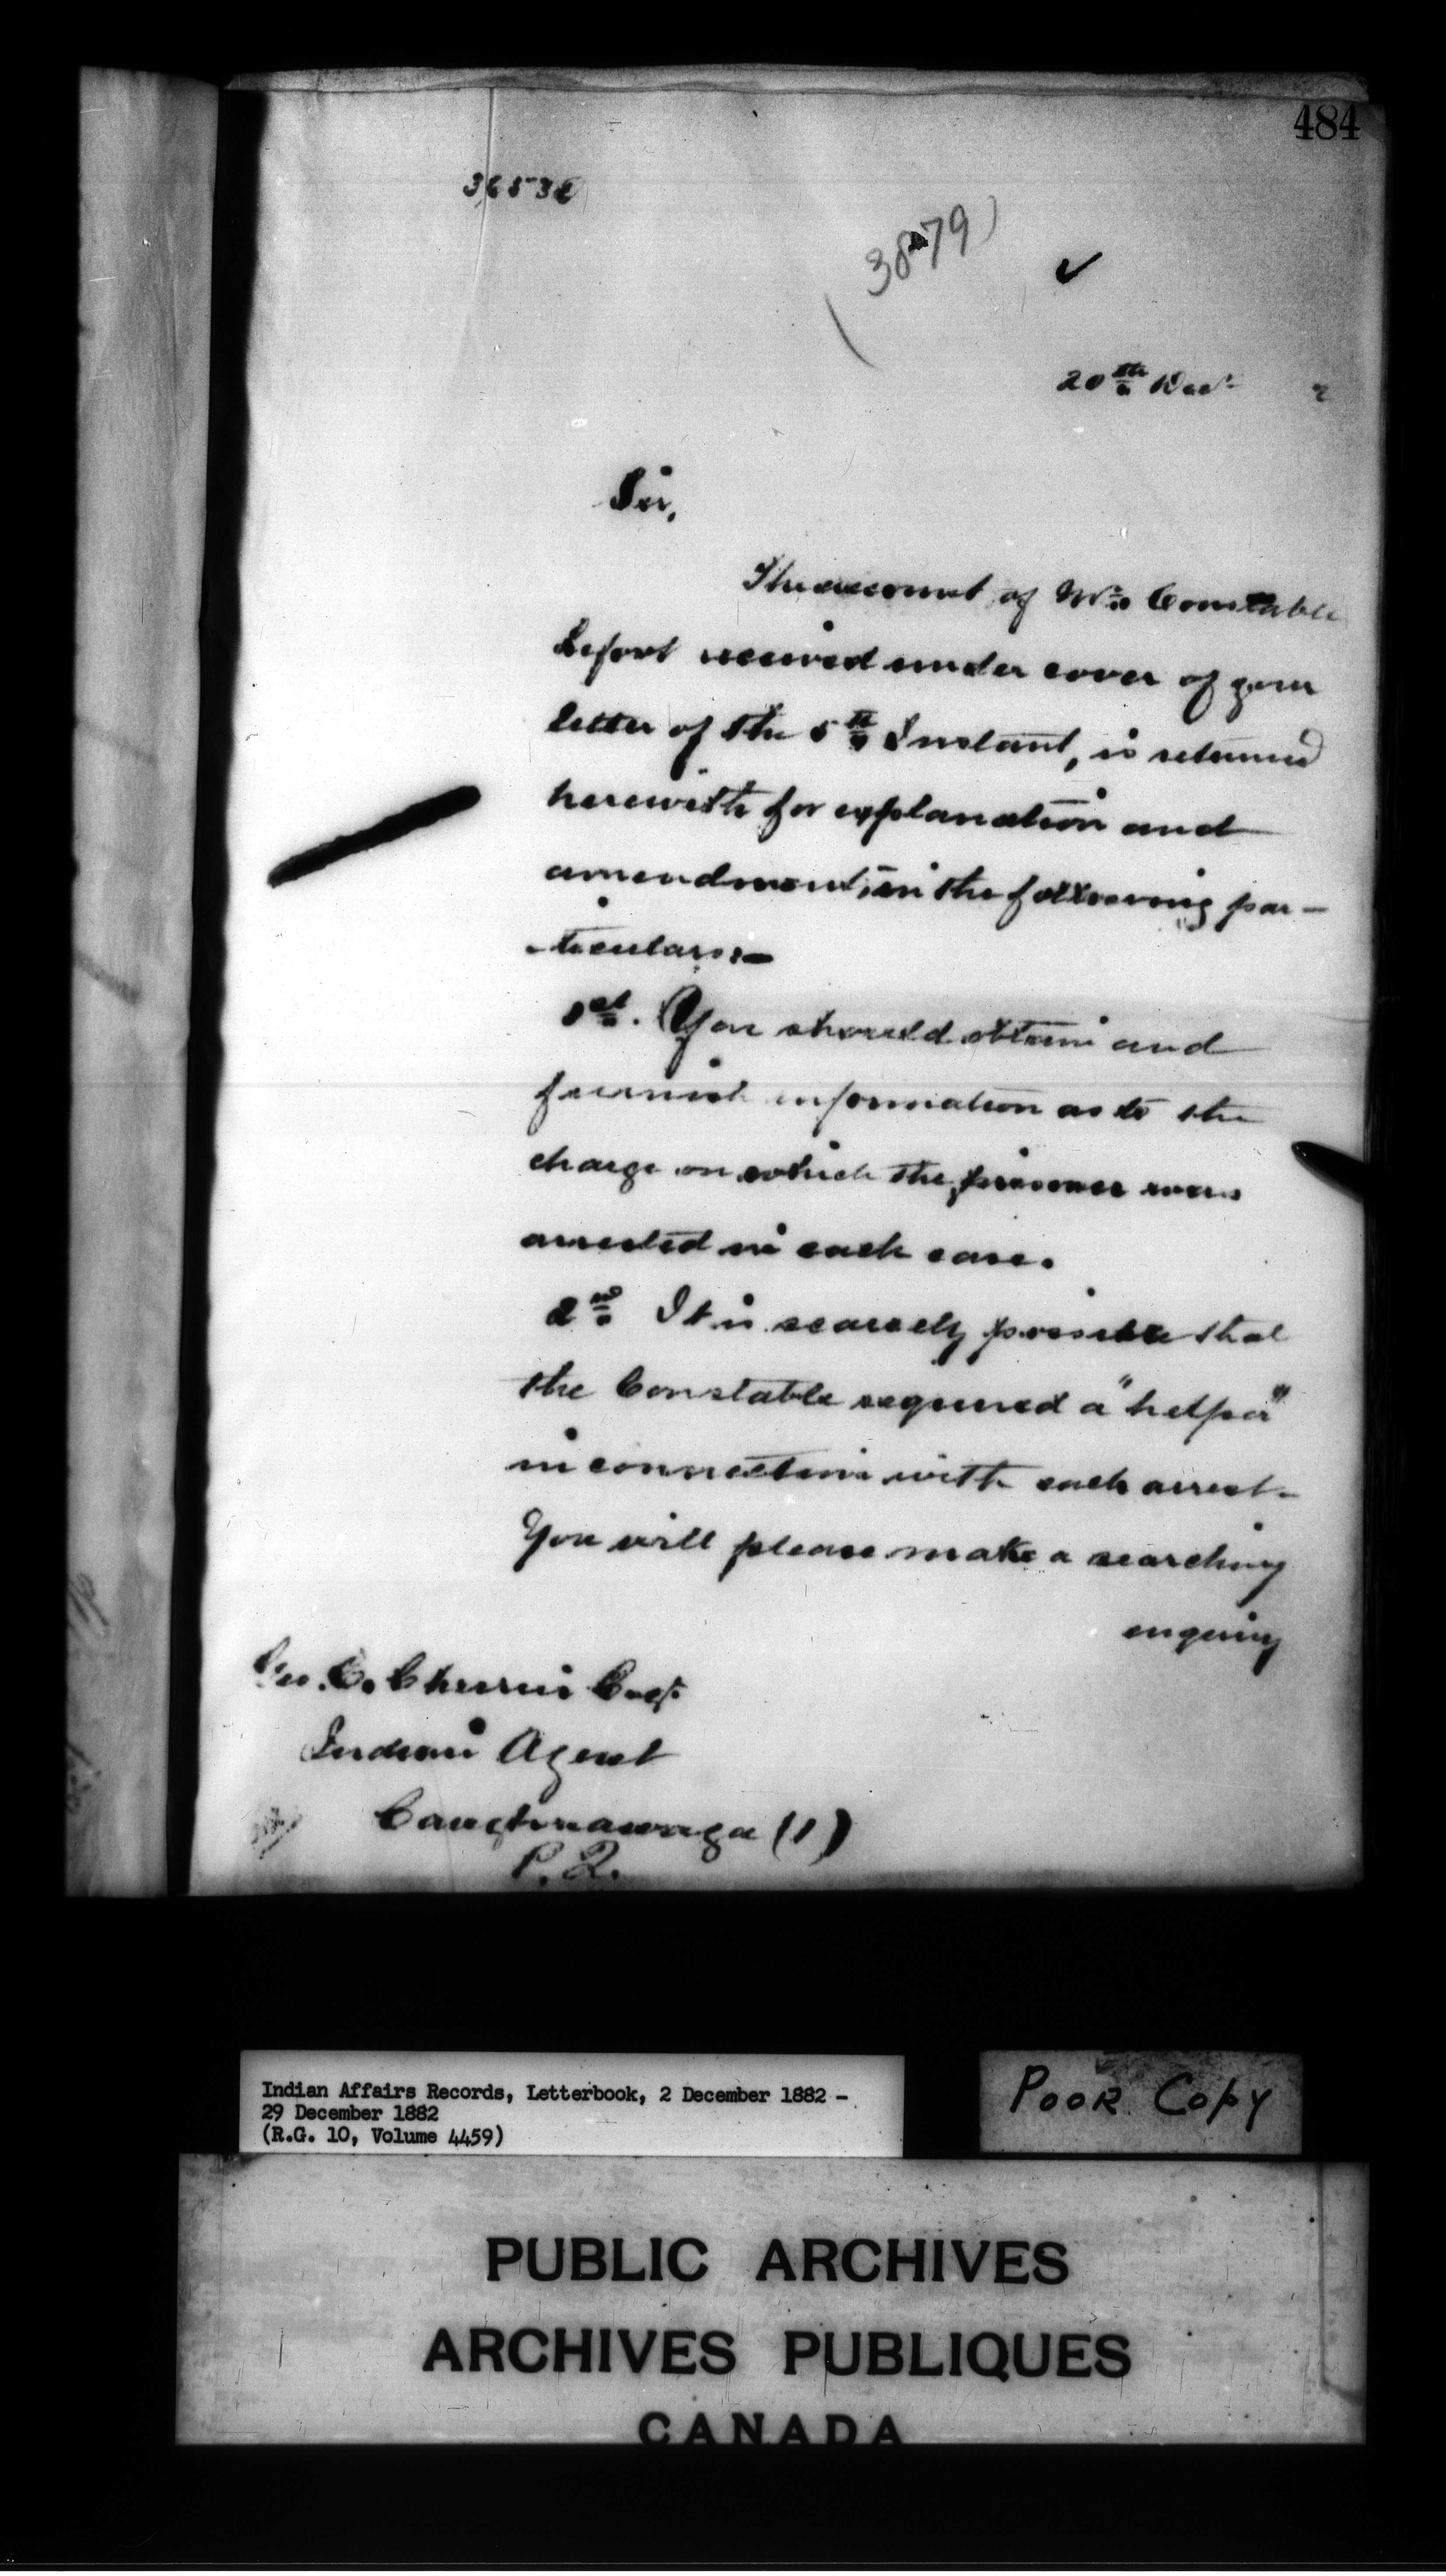 484
36538
(3879)
✓
20th Decr 2
Sir,
The account of Mr. Constable
Lefort received under cover of your
letter of the 5th Instant, is returned
herewith for explanation and
amendment, in the following par-
-ticulars:-
1st. You should obtain and
furnish information as to the
charge on which the prisoner was
arrested in each case.
2nd It is scarcely possible that
the Constable required a "helper"
in connection with each arrest-
You will please make a searching
enquiry
Geo. E. Cherrier Esqr
Indian Agent
Caughnawaga (1)
P.Q.
Indian Affairs Records, Letterbook, 2 December 1882 -
29 December 1882
(R.G. 10, Volume 4459)
POOR COPY
PUBLIC ARCHIVES
ARCHIVES PUBLIQUES
CANADA